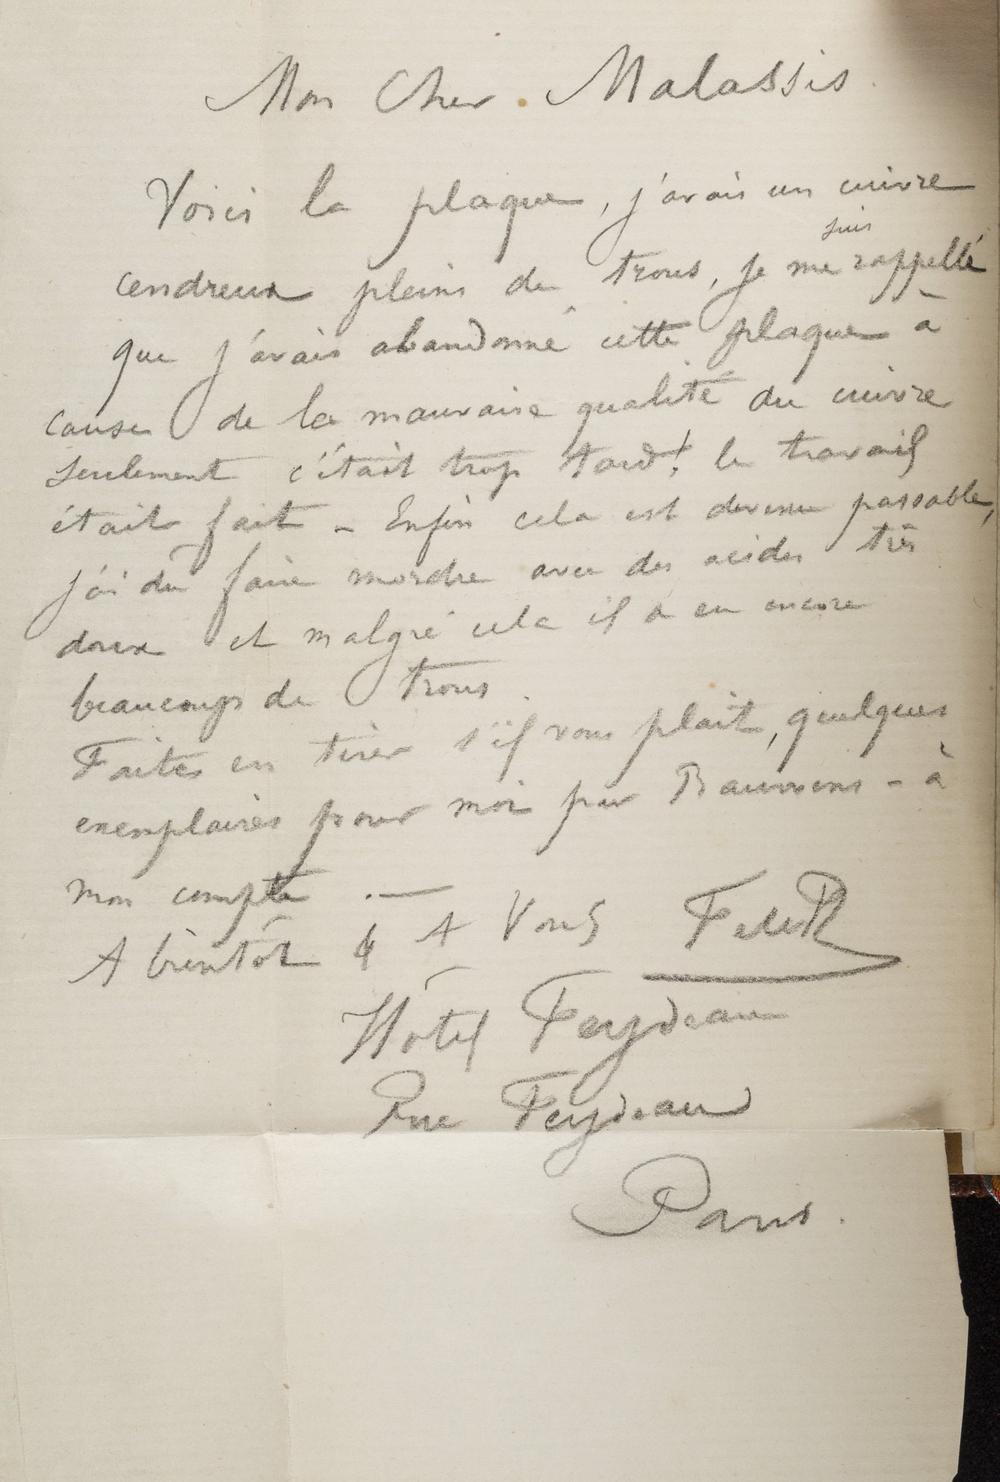 Mon Cher Malassis.
Voici la plaque, j'avais un cuivre
cendreux pleins de trous, je me suis rappellé
que j'avais abandonné cette plaque à
cause de la mauvaise qualité du cuivre
seulement c'était trop tard! le travail
était fait - Enfin cela est devenu passable,
j'ai dû faire mordre avec des acides très
doux et malgré cela il a eu encore
beaucoup de trous.
Faites en tirer s'il vous plait, quelques
exemplaires pour moi par - à
mon compte. —
A bientôt & A Vous FelR
Hôtel Feydeau
Rue Feydeau
Paris.